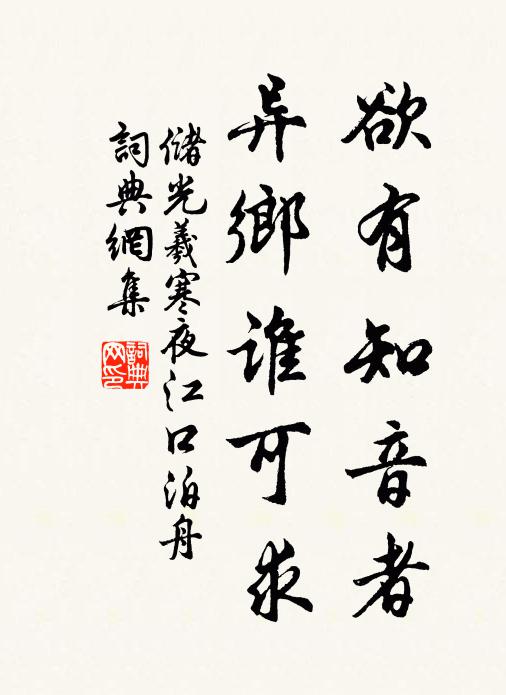 欲有知音者
异鄉誰可求
儲光羲寒夜江口泊舟
詞典網集
詞典網印